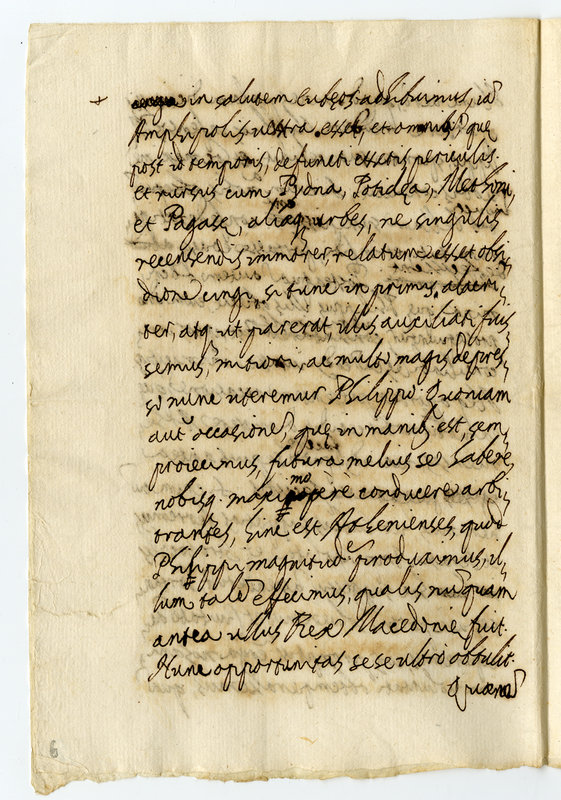 in salutem Eubeos adhibuimus, ia
Amphipolis vestra esset, et omnibus, que
post id temporis, defuncti essetis periculis.
et rursus cum Pydna, Potidea, Methoni,
et Pagase, aliæq urbes, ne singulis
recensendis immorer, relatum esset obsi,,
dione cingi, si tunc in primis alacri,,
ter, atq ut parerat, illis auxiliati fuis,,
semus, mitiori, ac multo magis depres,,
so nunc uteremur Philippo. Quoniam
aut occasione, que in manib est, sem,,
proiecimus, futura melius se habere,
nobisq. maximopere conducere arbi,,
trantes, hinc est Athenienses, quod
Philippi magnitud produximus, il,,
lum tale effecimus, qualis nuquam
antea ullus Rex Macedonie fuit.
Hunc opportunitas sese ultro obtulit.
Quæna
6